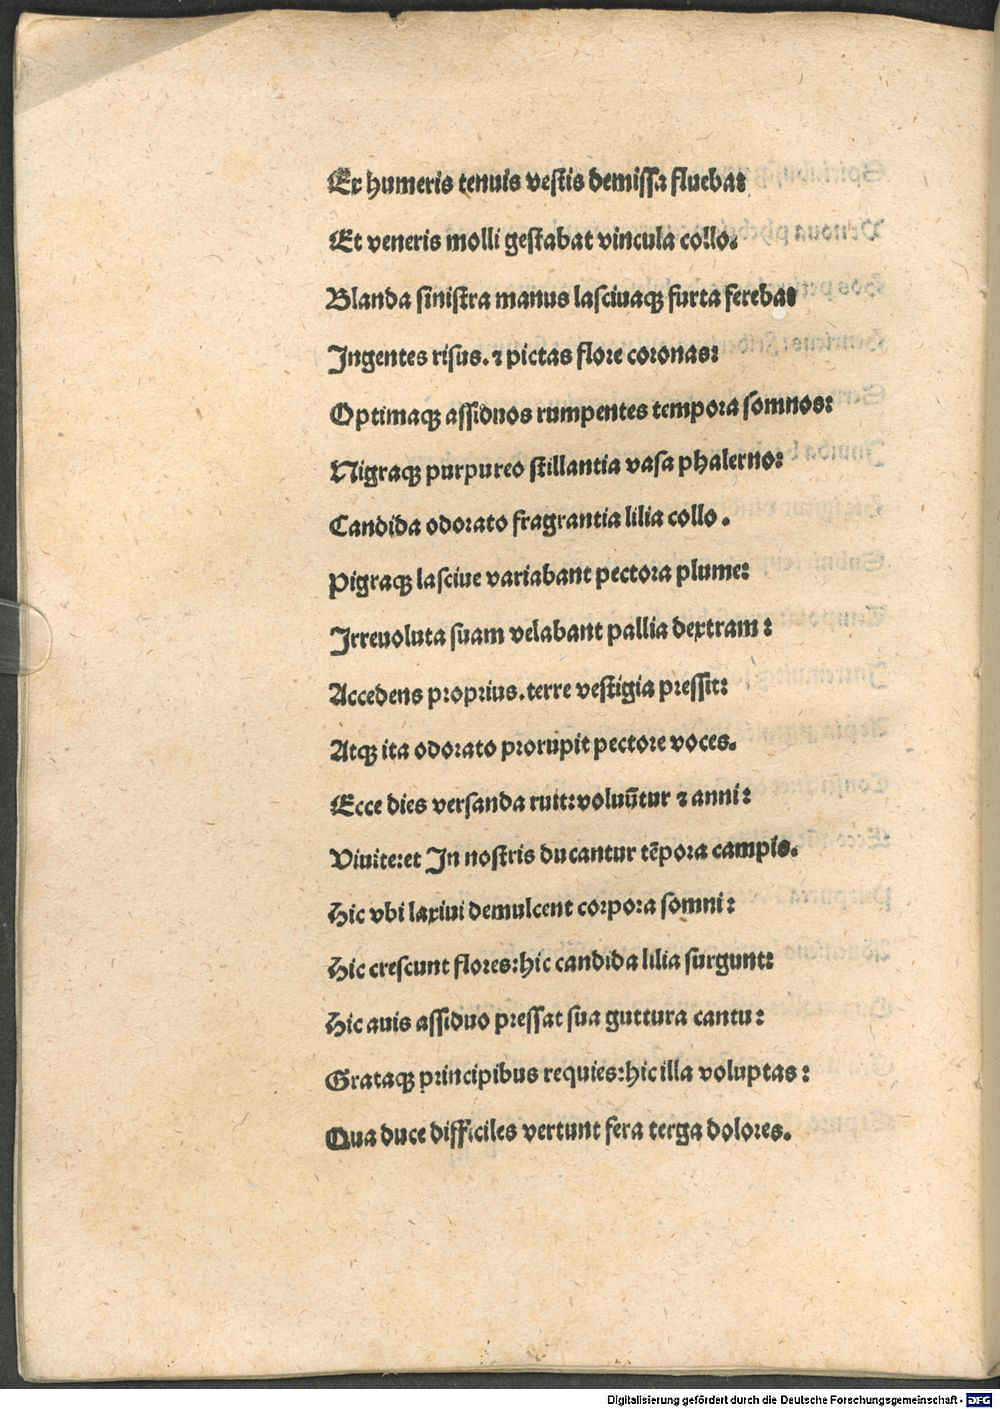 Ex humeris tenuis vestis demissa fluebat
Et veneris molli gestabat vincula collo:
Blanda sinistra manus lasciuaqꝫ furta ferebat
Ingentes risus. ⁊ pictas flore coronas:
Optimaqꝫ assiduos rumpentes tempora somnos:
Nigraqꝫ purpureo stillantia vasa phalerno:
Candida odorato fragrantia lilia collo.
Pigraqꝫ lasciue variabant pectora plume:
Irreuoluta suam velabant pallia dextram:
Accedens proprius. terre vestigia pressit:
Atqꝫ ita odorato prorupit pectore voces.
Ecce dies versanda ruit: voluūtur ⁊ anni:
Viuite: et In nostris ducantur tēpora campis.
Hic vbi laxiui demulcent corpora somni:
Hic crescunt flores: hic candida lilia surgunt:
Hic auis assiduo pressat sua guttura cantu:
Grataqꝫ principibus requies: hic illa voluptas:
Qua duce difficiles vertunt fera terga dolores.
Digitalisierung gefördert durch die Deutsche Forschungsgemeinschaft - DFG